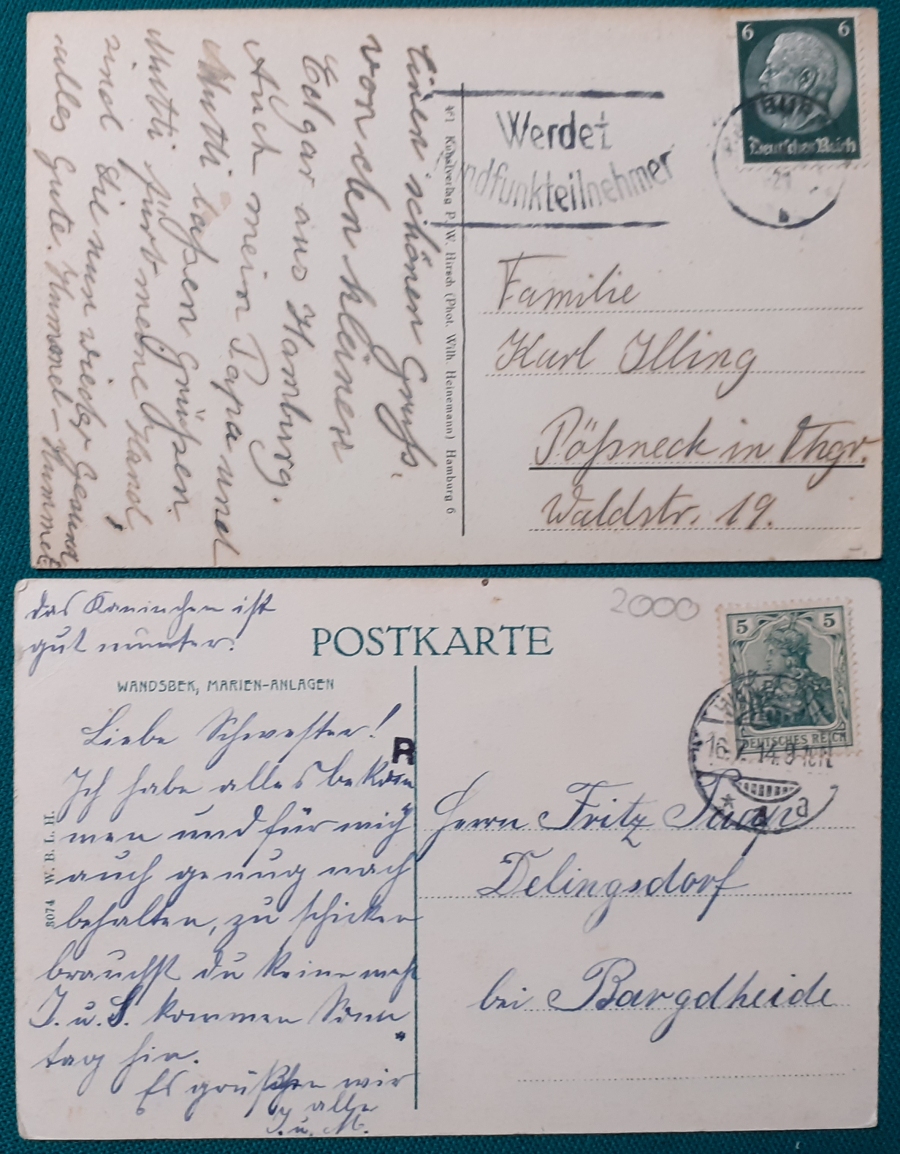 Einen schönen Gruß.
von dem kleinen
Edgar aus Hamburg.
Auch mein Papa und
Mutti laßen Grüßen.
Mutti fürt meine Hand
sind Sie nun wieder Gesund
alles Gute. Hummel-Hummel
461 Kunstverlag P. W. Hirsch (Phot. Wilh. Heinemann) Hamburg 6
Werdet
ndfunkteilnehmer
6 6
Deutsches Reich
BUR
21
b
Familie
Karl Illing
Pößneck in Thgr.
Waldstr. 19.
das Kaninchen ist
gut munter!
POSTKARTE
2000
WANDSBEK, MARIEN-ANLAGEN
Liebe Schwester!
R
Ich habe alles bekom
men und für mich
auch genug nach
behalten, zu schicken
brauchst du keine mehr
J. u. S. kommen Sonn
tag hin.
Es grüßen wir
alle
J. u. M.
8074 W. B. L. H.
5 5
DEUTSCHES REICH
16.7.14.9
* a
Herrn Fritz
Delingsdorf
bei Bargdheide